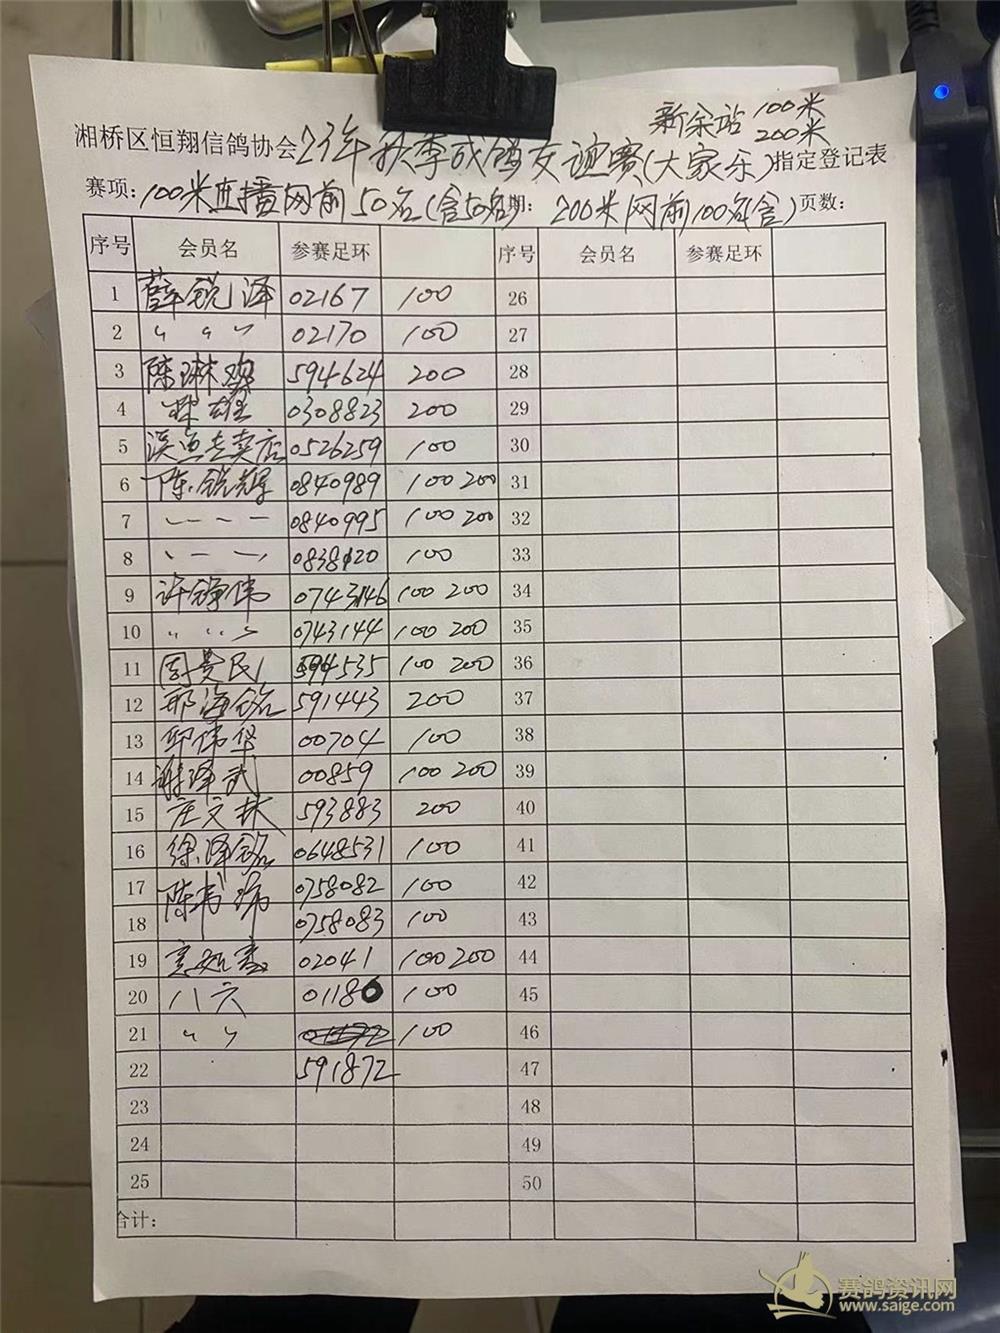 新余站 100米
200米
湘桥区恒翔信鸽协会23年秋季成鸽友谊赛(大家乐)指定登记表
赛项:100米直播网前50名(含50名)期: 200米网前100名(含)页数:
序号 会员名 参赛足环 序号 会员名 参赛足环
1 薛锐泽 02167 100 26
2 〃 〃 〃 02170 100 27
3 陈琳 594624 200 28
4 林雄 0308823 200 29
5 溪鱼专卖店 0526259 100 30
6 陈锐辉 0840989 100 200 31
7 0840995 100 200 32
8 0838120 100 33
9 许铮伟 0743146 100 200 34
10 〃 〃 〃 0743144 100 200 35
11 民 594535 100 200 36
12 郑海铭 591443 200 37
13 邱伟华 00704 100 38
14 谢泽武 00859 100 200 39
15 庄文林 593883 200 40
16 徐泽铭 0648531 100 41
17 陈书 0758082 100 42
18 0758083 100 43
19 02041 100 200 44
20 八六 01186 100 45
21 〃 〃 100 46
22 591872 47
23 48
24 49
25 50
合计:
赛鸽资讯网
www.saige.com